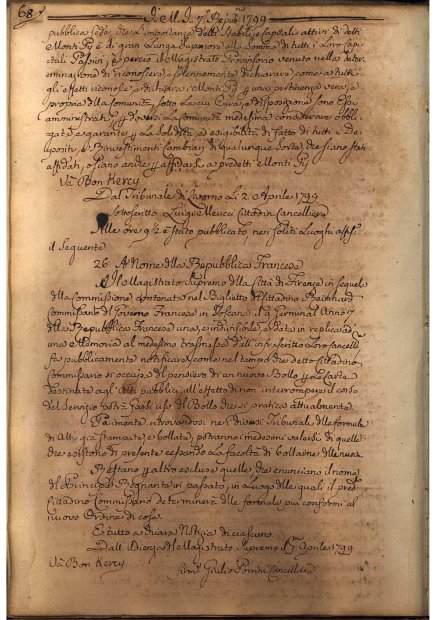 68
pubblica fede, che l'importanza delli Stabili, e Capitali attivi di detti
Monti Pij è di gran lunga Superiore alla Somma di tutti i Loro Capi-
tali Passivi, e perciò il Magistrato Provvisorio venuto nella deter-
minazione di riconoscere, e solennemente dichiarare, come a tutti
gl'effetti riconosce, e dichiara i Monti Pij una pertinenza vera, e
propria della Comunità, sotto la cui Cura, e disposizione sono Essi
amministrati, doversi la Comunità medesima considerare obbli-
gata a garantire la Solidità, e esigibilità di fatto di tutti i De-
positi, e Rinvestimenti Cambiari di qualunque Sorte, che siano stati
affidati, o siano anche per affidarsi a predetti Monti Pij
Va Bon Kercy
Dal Tribunale di Livorno Li 2 Aprile 1799
Sottoscritto Luigi Meucci Cittadin Cancelliere
Alle ore 9½ è stato pubblicato nei soliti Luoghi
il Seguente
26. A Nome della Repubblica Francese
Il Magistrato Supremo della Città di Firenze in sequela
della Commissione contenuta nel Biglietto del Cittadino Reinhard
Commissario del Governo Francese in Toscana de Germinal Anno 7
della Repubblica Francese una, e indivisibile, e data in replica di
una Memoria al medesimo trasmessa dall'infrascritto Loro Cancelle
fà pubblicamente notificare, come nel tempo che detto Cittadino
Commissario si occupa del pensiero di un nuovo Bollo la Carta
destinata agl'Atti pubblici, all'effetto di non interrompere il corso
del Servizio potrà farsi uso del Bollo che si pratica attualmente.
Parimente ritrovandosi nei diversi Tribunali delle formule
di Atti già stampate, e bollate, potranno i medesimi valersi di quelle
che esistono di presente cessando la facoltà di bollarne delle nuove.
Restano altro escluse quelle che enunciano il nome
del Principe Regnante in passato, in Luogo delle quali il pred.
Cittadino Commissario determinerà delle formule più conformi al
nuovo Ordine di cose.
E tutto a chiara Notizia di ciascuno
Dall'Udienza del Magistrato Supremo Aprile 1799
Va Bon Kercy
Giulio Cancelliere